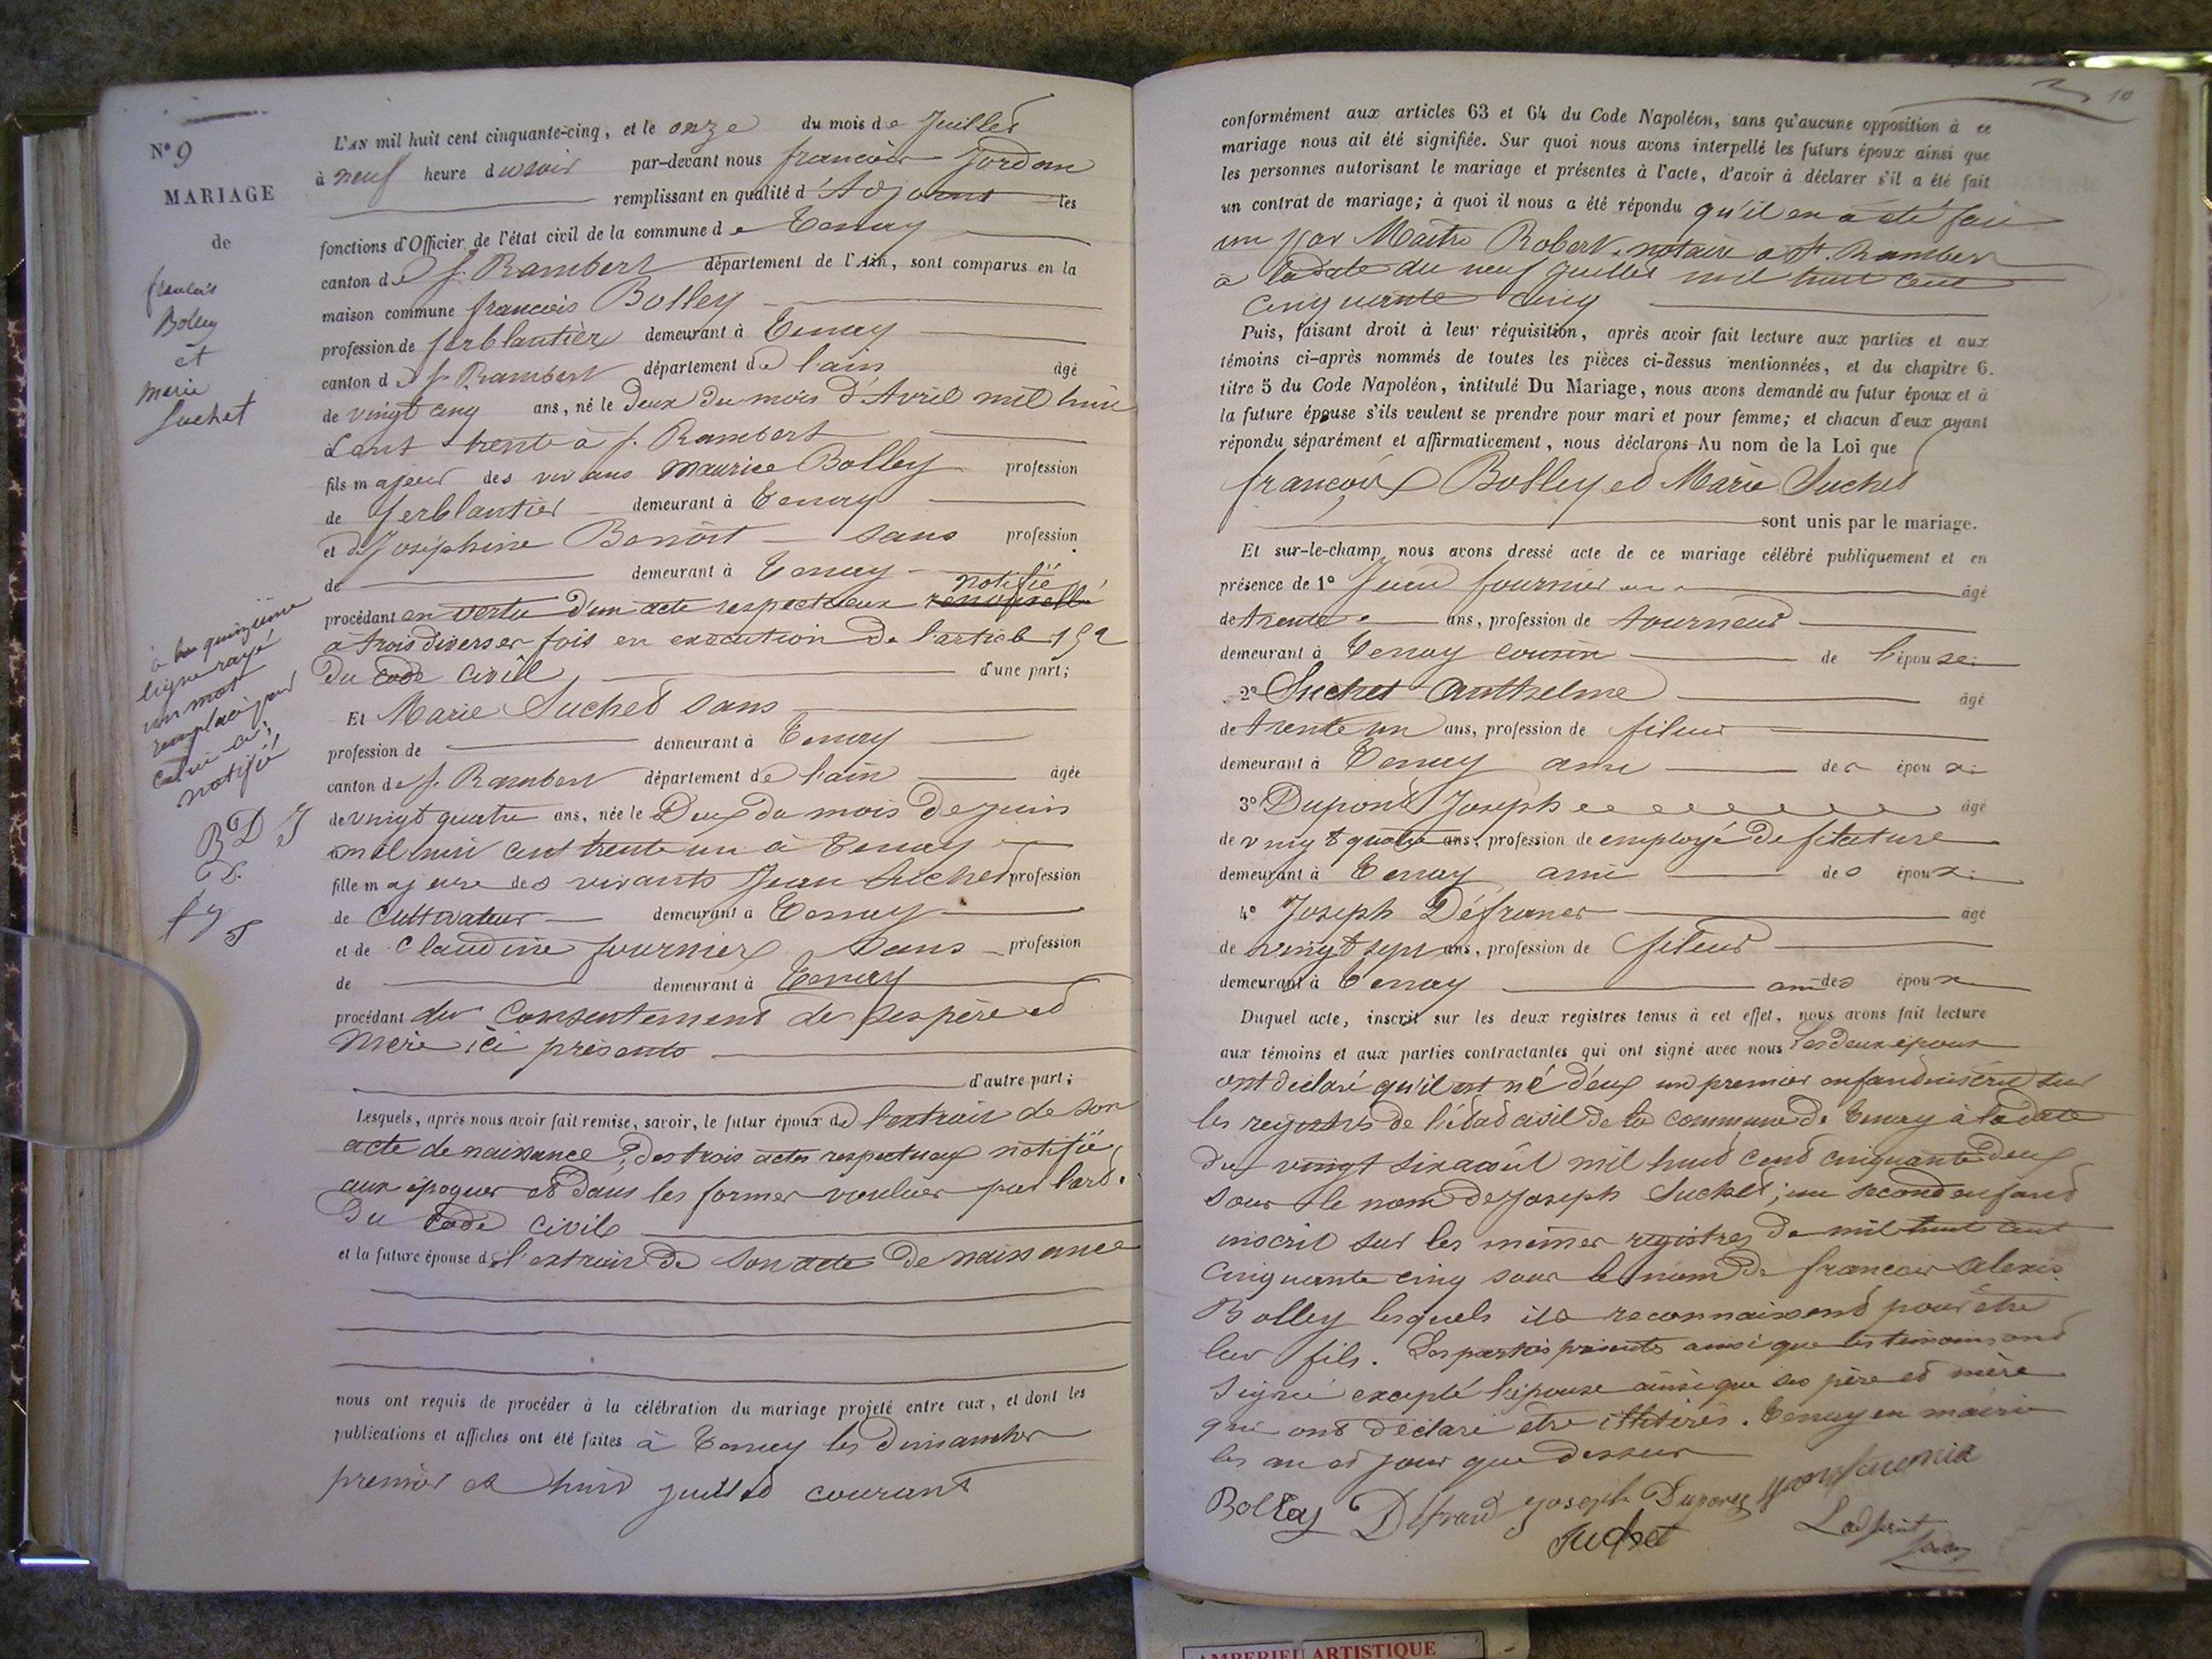 N° 9
MARIAGE
de
françois
Bolley
et
marie
Suchet
L'AN mil huit cent cinquante-cinq, et le onze du mois de Juillet
à neuf heure du soir par-devant nous françois Jordan
remplissant en qualité d'Adjoint les
fonctions d'Officier de l'état civil de la commune de Tenay
canton de St. Rambert département de l'Ain, sont comparus en la
maison commune francois Bolley
profession de ferblantier demeurant à Tenay
canton de St. Rambert département de l'ain âgé
de vingt cinq ans, né le Deux du mois d'Avril mil huit
cent trente à St. Rambert
fils majeur des vivans maurice Bolley profession
de ferblantier demeurant à Tenay
et de Joséphine Benoit sans profession
de demeurant à Tenay
notifié
procédant en vertu d'un acte respectueux renouvellé
à trois diverses fois en exécution de l'article 152
Du code civil d'une part;
à la quinzième
ligne rayé
un mot
remplacé par
celui-ci;
notifié
B D J
Et Marie Suchet sans
profession de demeurant à Tenay
canton de St. Rambert département de l'ain âgée
de vingt quatre ans, née le Deux du mois de juin
mil huit cent trente un à Tenay
fille majeure des vivants Jean Suchet profession
de Cultivateur demeurant à Tenay
et de Claudine fournier sans profession
de demeurant à Tenay
procédant du Consentement de ses père et
mère ici présents
d'autre part;
Lesquels, après nous avoir fait remise, savoir, le futur époux de l'extrait de son
acte de naissance, des trois actes respectueux notifié
aux époques et dans les formes voulues par l'art.
Du Code Civil
et la future épouse de l'extrait de son acte de naissance
nous ont requis de procéder à la célébration du mariage projeté entre eux, et dont les
publications et affiches ont été faites à Tenay les Dimanches
premier et huit juillet courant
10
conformément aux articles 63 et 64 du Code Napoléon, sans qu'aucune opposition à ce
mariage nous ait été signifiée. Sur quoi nous avons interpellé les futurs époux ainsi que
les personnes autorisant le mariage et présentes à l'acte, d'avoir à déclarer s'il a été fait
un contrat de mariage; à quoi il nous a été répondu qu'il en a été fait
un par Maitre Robert, notaire à St. Rambert
à la date du neuf juillet mil huit cent
cinquante cinq
Puis, faisant droit à leur réquisition, après avoir fait lecture aux parties et aux
témoins ci-après nommés de toutes les pièces ci-dessus mentionnées, et du chapitre 6.
titre 5 du Code Napoléon, intitulé Du Mariage, nous avons demandé au futur époux et à
la future épouse s'ils veulent se prendre pour mari et pour femme; et chacun d'eux ayant
répondu séparément et affirmativement, nous déclarons Au nom de la Loi que
françois Bolley et Marie Suchet
sont unis par le mariage.
Et sur-le-champ nous avons dressé acte de ce mariage célébré publiquement et en
présence de 1° Jean fournier âgé
de trente ans, profession de tourneur
demeurant à Tenay cousin de l'épouse;
2° Suchet Anthelme âgé
de trente un ans, profession de fileur
demeurant à Tenay ami des époux;
3° Dupont Joseph âgé
de vingt quatre ans, profession de employé de filature
demeurant à Tenay ami des époux;
4° Joseph Défranes âgé
de vingt sept ans, profession de fileur
demeurant à Tenay ami des époux
Duquel acte, inscrit sur les deux registres tenus à cet effet, nous avons fait lecture
aux témoins et aux parties contractantes qui ont signé avec nous Les deux époux
ont déclaré qu'il est né d'eux un premier enfant inscrit sur
les registres de l'état civil de la commune de Tenay à la date
du vingt six août mil huit cent cinquante deux
sous le nom de Joseph Suchet; un second enfant
inscrit sur les mêmes registres de mil huit cent
cinquante cinq sous le nom de françois Alexis
Bolley lesquels ils reconnaissent pour être
leur fils. Les parties présentes ainsi que les témoins ont
signé excepté l'épouse ainsi que ses père et mère
qui ont déclaré être illitérés. Tenay en mairie
les an et jour que dessus
Bolley Défrand Joseph Dupont
Suchet L'adjoint
AMBERIEU ARTISTIQUE